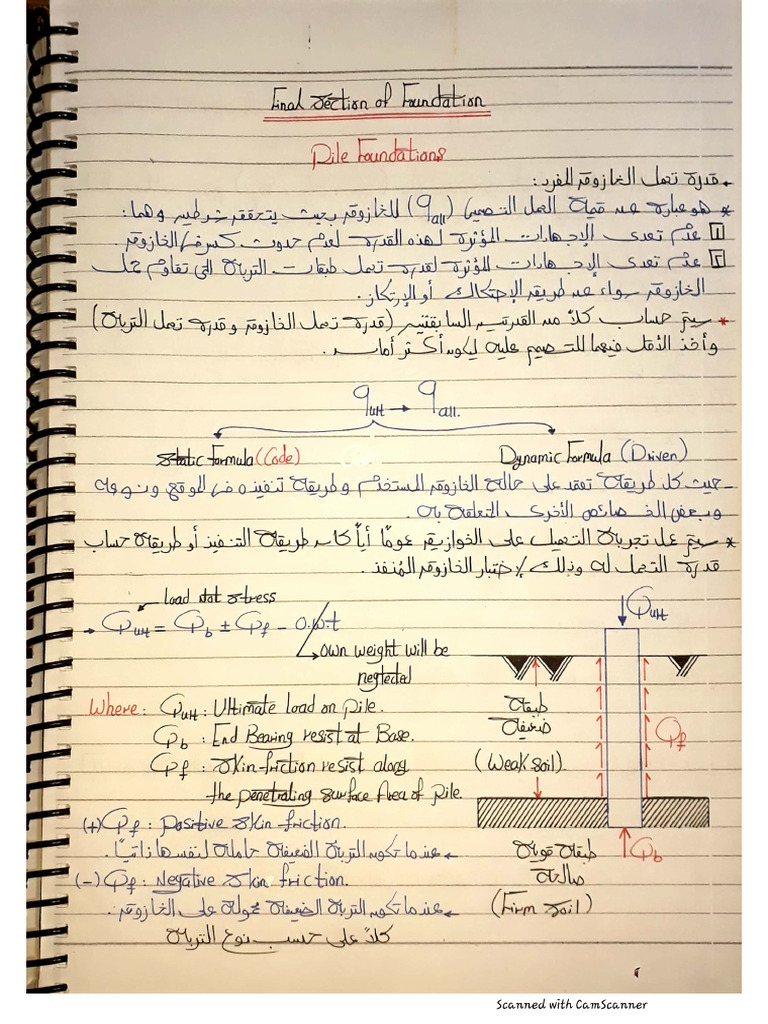 Final Section of Foundation
Pile Foundations
قدرة تحمل الخازوق المفرد:
* هو عبارة عن قيمة الحمل التصميمي (qall) للخازوق بحيث يتحقق شرطين وهما:
1 عدم تعدى الإجهادات المؤثرة لهذه القدرة لعدم حدوث كسر في الخازوق
2 عدم تعدى الإجهادات المؤثرة لقدرة تحمل طبقات التربة التى تقاوم حمل
الخازوق سواء عن طريق الإحتكاك أو الإرتكاز.
* سيتم حساب كلاً من القدرتين السابقتين (قدرة تحمل الخازوق وقدرة تحمل التربة)
وأخذ الأقل فيهما للتصميم عليه ليكون أكثر أمان.
qult → qall.
Static Formula (Code)
Dynamic Formula (Driven)
- حيث كل طريقة تعتمد على حالة الخازوق المستخدم وطريقة تنفيذه في الموقع ونوعه
وبعض الخصائص الأخرى المتعلقة به.
* سيتم عمل تجربة التحميل على الخوازيق عمومًا أياً كان طريقة التنفيذ أو طريقة حساب
قدرة التحمل له وذلك لإختبار الخازوق المُنفذ.
load not stress
→ Qult = Qb ± Qf - o.w.t
→ own weight will be
neglected
Where: Qult : Ultimate load on pile.
Qb : End Bearing resist at Base.
Qf : Skin-friction resist along
the penetrating surface Area of Pile.
(+) Qf : Positive Skin-friction.
← عندما تكون التربة الضعيفة حاملة لنفسها ذاتياً.
(-) Qf : Negative Skin friction.
← عندما تكون التربة الضعيفة محمولة على الخازوق.
كلاً على حسب نوع التربة
Qult
طبقة
ضعيفة
(Weak soil)
Qf
طبقة قوية
صالحة
(Firm soil)
Qb
Scanned with CamScanner